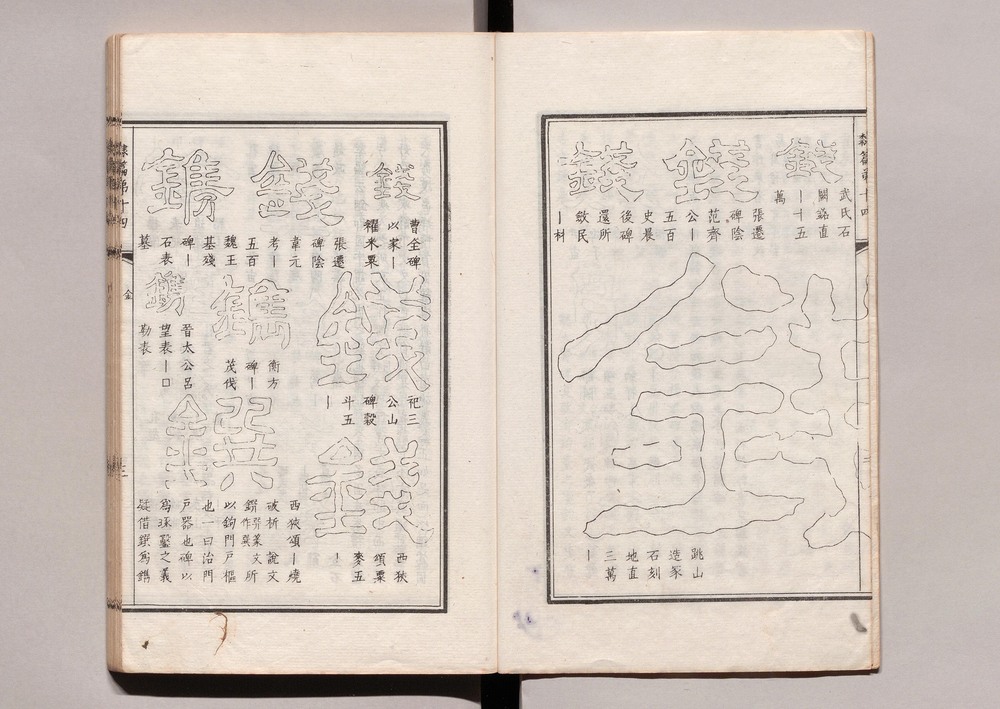 隸篇第十四
錢
武氏石
闕銘直
｜十五
萬
錢
張遷
碑陰
范齊
公｜
五百
錢
史晨
後碑
還所
斂民
｜材
錢
跳山
造冢
石刻
地直
三萬
｜
錢
曹全碑
以家｜
糴米粟
錢
張遷
碑陰
韋元
考｜
五百
錢
祀三
公山
碑穀
斗五
｜
錢
西狹
頌粟
麥五
｜
鐫
魏王
基殘
碑｜
石表
墓
鐫
衡方
碑｜
茂伐
鐫
晉太公呂
望表｜□
勒表
鐉
西狹頌｜燒
破析 說文
鐉 文所
以鉤門戶樞
也一曰治門
戶器也碑以
爲琢鑿之義
疑借鐉爲鐫
隸篇第十四
金